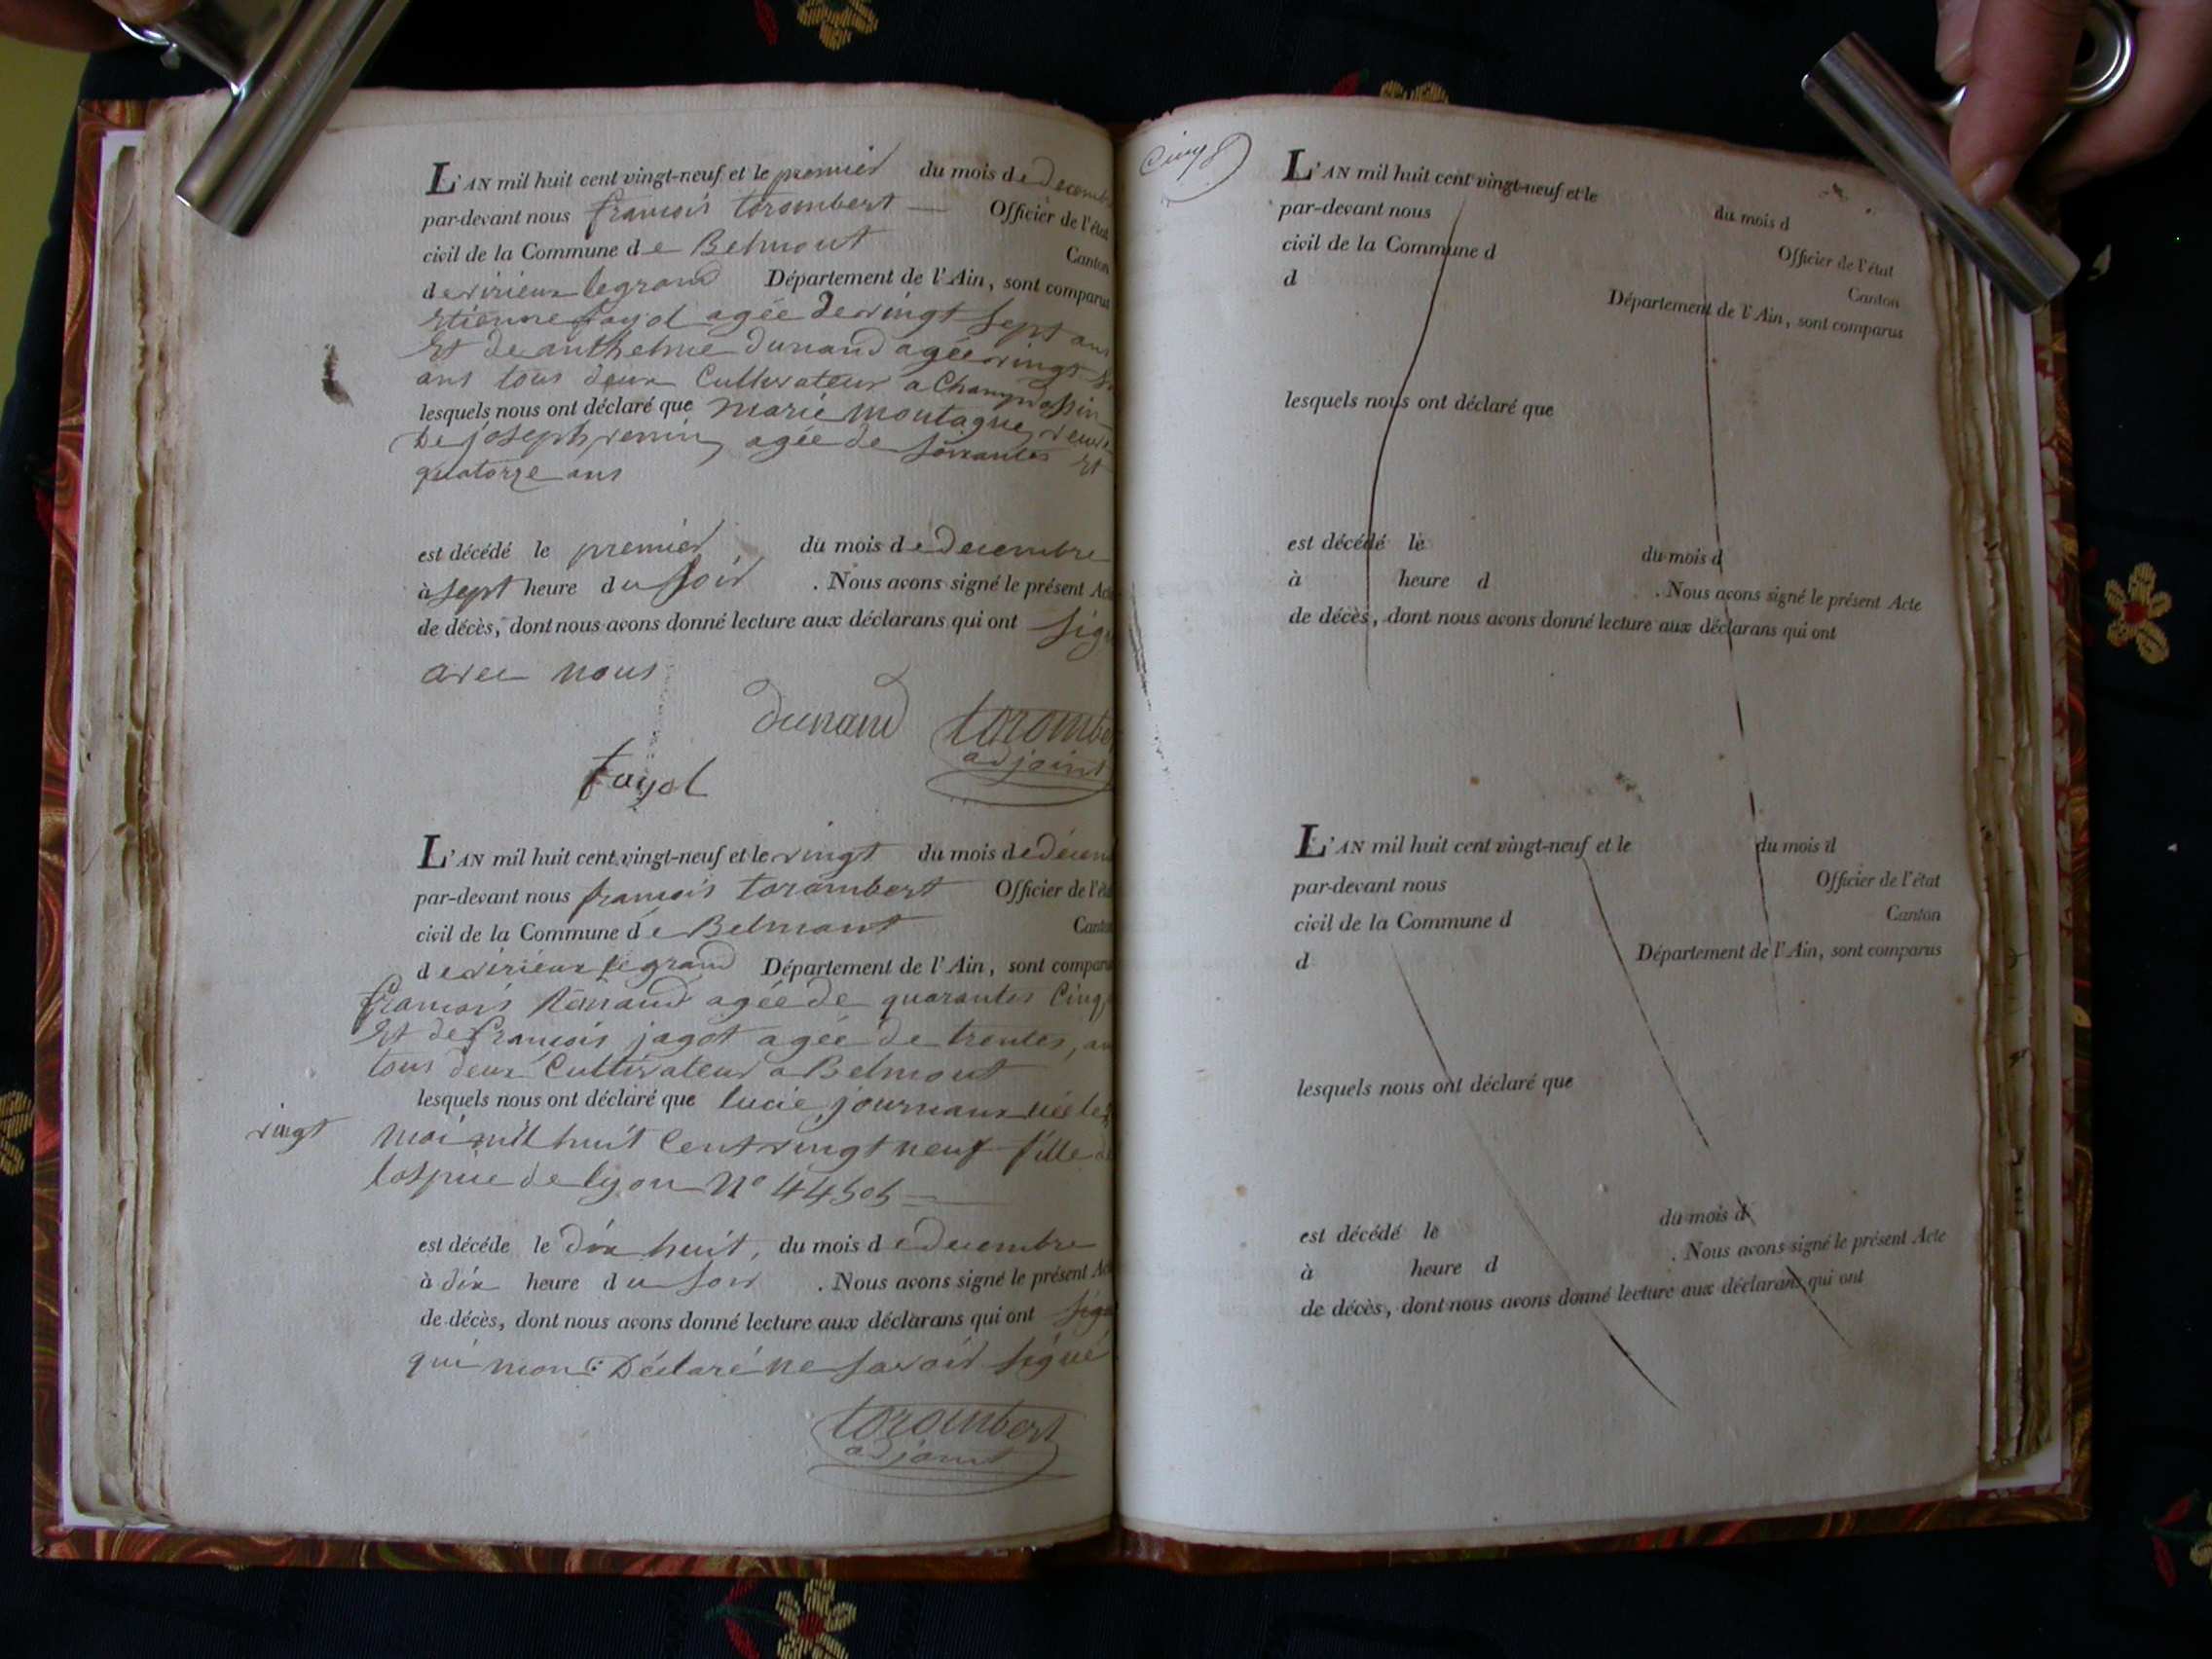 L'AN mil huit cent vingt-neuf et le premier du mois de Decembre
par-devant nous françois torombert Officier de l'état
civil de la Commune de Belmont Canton
de virieux legrand Département de l'Ain, sont comparus
Etienne fayol agée de vingt sept ans
Et de anthelme dunand agée vingt
ans tous deux Cultivateur a Champdossin
lesquels nous ont déclaré que marie montagne, veuve
De joseph, agée de soixantes Et
quatorze ans
est décédé le premier du mois de Decembre
à sept heure du soir . Nous avons signé le présent Acte
de décès, dont nous avons donné lecture aux déclarans qui ont sig
avec nous
dunand torombe
adjoint
fayol
L'AN mil huit cent vingt-neuf et le vingt du mois de décem
par-devant nous françois torombert Officier de l'éta
civil de la Commune de Belmont Canton
de virieux le grand Département de l'Ain, sont comparu
françois Renaud agée de quarantes Cinq
Et de françois jagot agée de trentes, an
tous deux Cultivateur a Belmont
lesquels nous ont déclaré que lucie, journaux née le
vingt
mai mil huit Cent vingt neuf fille de
lospice de lyon N° 44505
est décéde le dix huit, du mois de Decembre
à dix heure du soir . Nous avons signé le présent Act
de décès, dont nous avons donné lecture aux déclarans qui ont sign
qui mont Déclaré ne savoir signé
torombert
adjoint
L'AN mil huit cent vingt-neuf et le du mois d
par-devant nous Officier de l'état
civil de la Commune d Canton
d Département de l'Ain, sont comparus
lesquels nous ont déclaré que
est décédé le du mois d
à heure d . Nous avons signé le présent Acte
de décès, dont nous avons donné lecture aux déclarans qui ont
L'AN mil huit cent vingt-neuf et le du mois d
par-devant nous Officier de l'état
civil de la Commune d Canton
d Département de l'Ain, sont comparus
lesquels nous ont déclaré que
est décédé le du mois d
à heure d . Nous avons signé le présent Acte
de décès, dont nous avons donné lecture aux déclarans qui ont